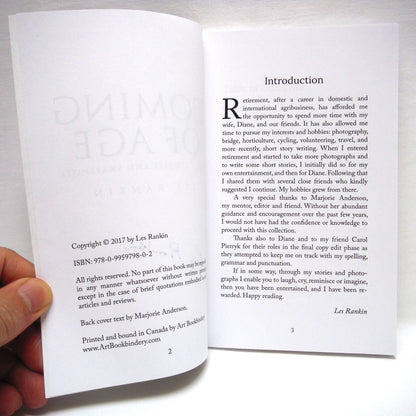 Copyright © 2017 by Les Rankin
ISBN: 978-0-9959798-0-2
All rights reserved. No part of this book may be reproduced
in any manner whatsoever without written permission
except in the case of brief quotations embodied in
articles and reviews.
Back cover text by Marjorie Anderson.
Printed and bound in Canada by Art Bookbindery.
www.ArtBookbindery.com
2
Introduction
Retirement, after a career in domestic and
international agribusiness, has afforded me
the opportunity to spend more time with my
wife, Diane, and our friends. It has also allowed me
time to pursue my interests and hobbies: photography,
bridge, horticulture, cycling, volunteering, travel, and
more recently, short story writing. When I entered
retirement and started to take more photographs and
to write some short stories, I initially did so for my
own entertainment, and then for Diane. Following that
I shared them with several close friends who kindly
suggested I continue. My hobbies grew from there.
A very special thanks to Marjorie Anderson, my
mentor, editor and friend. Without her abundant
guidance and encouragement over the past few years,
I would not have had the confidence or knowledge to
proceed with this collection.
Thanks also to Diane and to my friend Carol
Pietryk for their roles in the final copy edit phase as
they attempted to keep me on track with my spelling,
grammar and punctuation.
If in some way, through my stories and photo-
graphs I enable you to laugh, cry, reminisce or imagine,
then you have been entertained, and I have been re-
warded. Happy reading.
Les Rankin
3